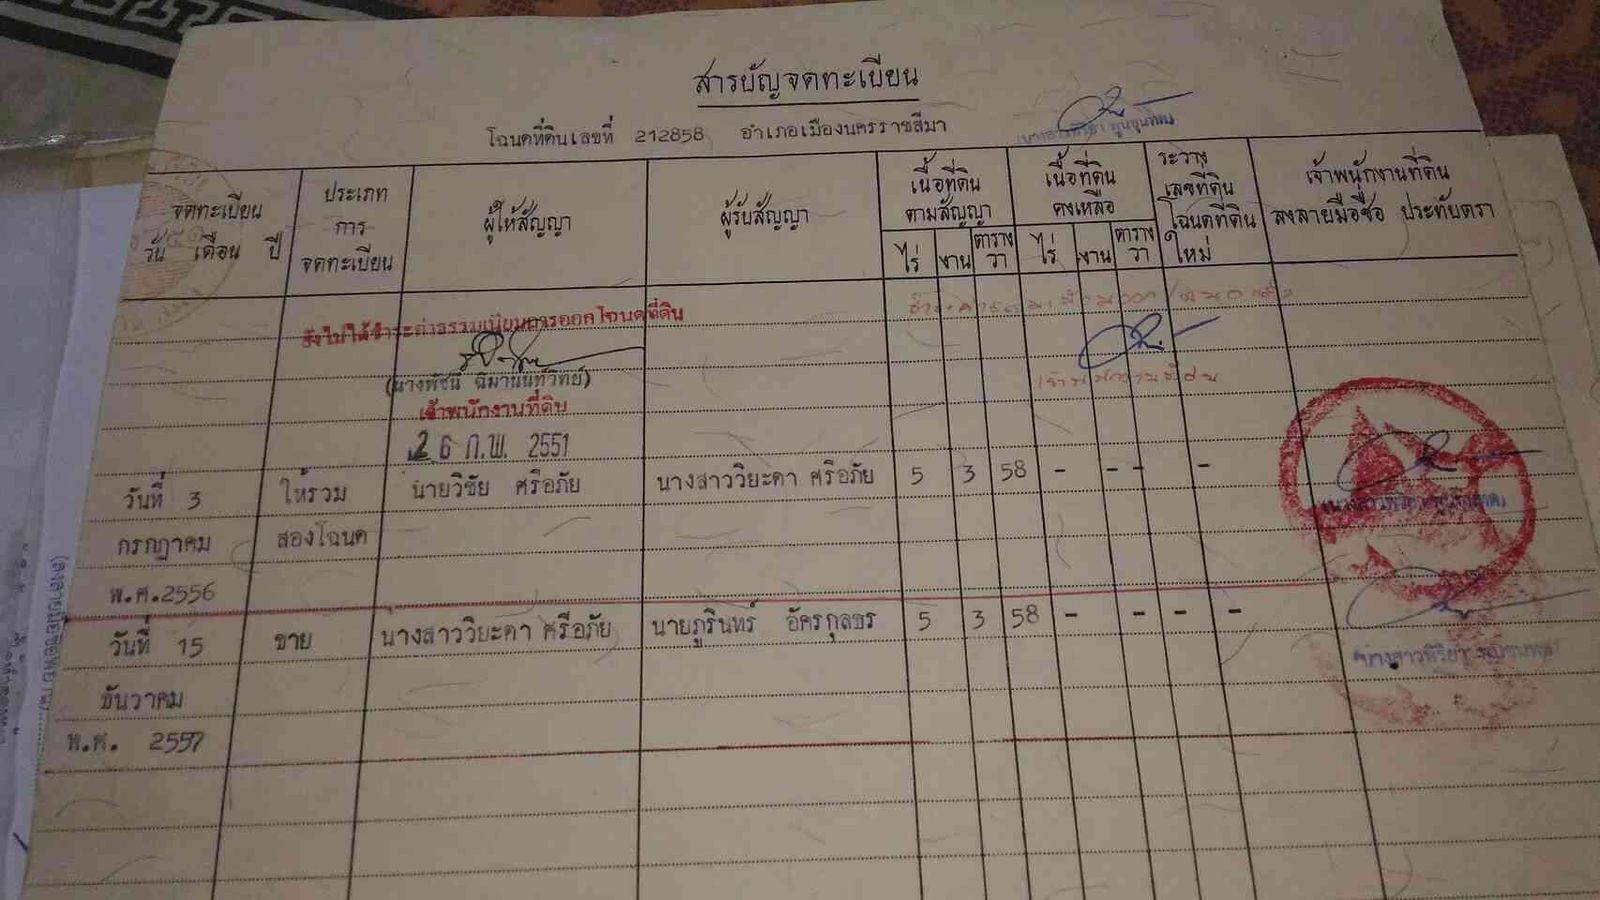 สารบัญจดทะเบียน
โฉนดที่ดินเลขที่ 212858 อำเภอเมืองนครราชสีมา
จดทะเบียน
วัน เดือน ปี
ประเภท
การ
จดทะเบียน
ผู้ให้สัญญา
ผู้รับสัญญา
เนื้อที่ดิน
ตามสัญญา
ไร่ งาน ตาราง
วา
เนื้อที่ดิน
คงเหลือ
ไร่ งาน ตาราง
วา
ระวาง
เลขที่ดิน
โฉนดที่ดิน
ใหม่
เจ้าพนักงานที่ดิน
ลงลายมือชื่อ ประทับตรา
สั่งไม่ให้ชำระค่าธรรมเนียมการออกโฉนดที่ดิน
(นางพัชนี ฉิมานันท์วิทย์)
เจ้าพนักงานที่ดิน
26 ก.พ. 2551
วันที่ 3 ให้รวม นายวิชัย ศรีอภัย นางสาววิยะดา ศรีอภัย 5 3 58 - - - -
กรกฎาคม สองโฉนด
พ.ศ.2556
วันที่ 15 ขาย นางสาววิยะดา ศรีอภัย นายภูรินทร์ อัครกุลธร 5 3 58 - - - -
ธันวาคม
พ.ศ. 2557